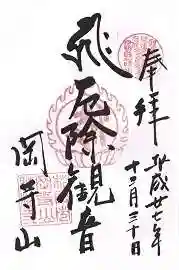 奉拝
平成廿七年
十二月三十日
厄除観音
岡寺山